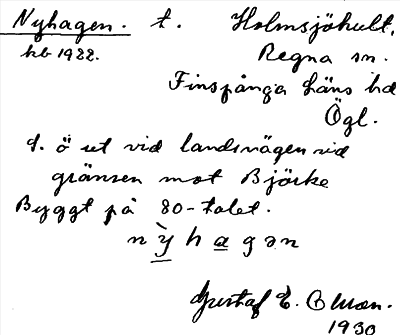 Nyhagen. t. Holmsjöhult,
hb 1922. Regna sn.
Finspånga läns hd
Ögl.
d. ö ut vid landsvägen vid
gränsen mot Björke
Byggt på 80-talet.
nỳhagən
Gustaf E. Oman.
1930